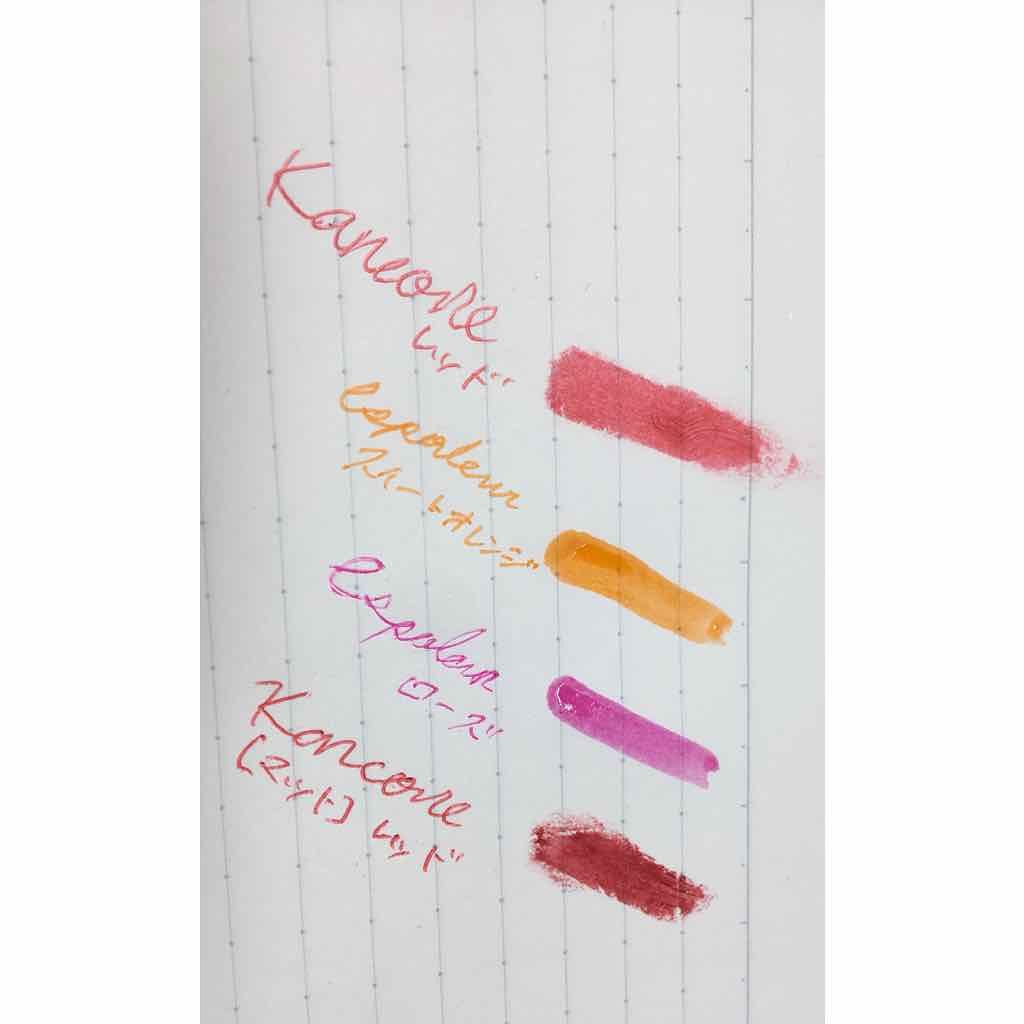 Kancone
レッド
espoleur
スイートオレンジ
espoleur
ローズ
Kancone
[マット] レッド